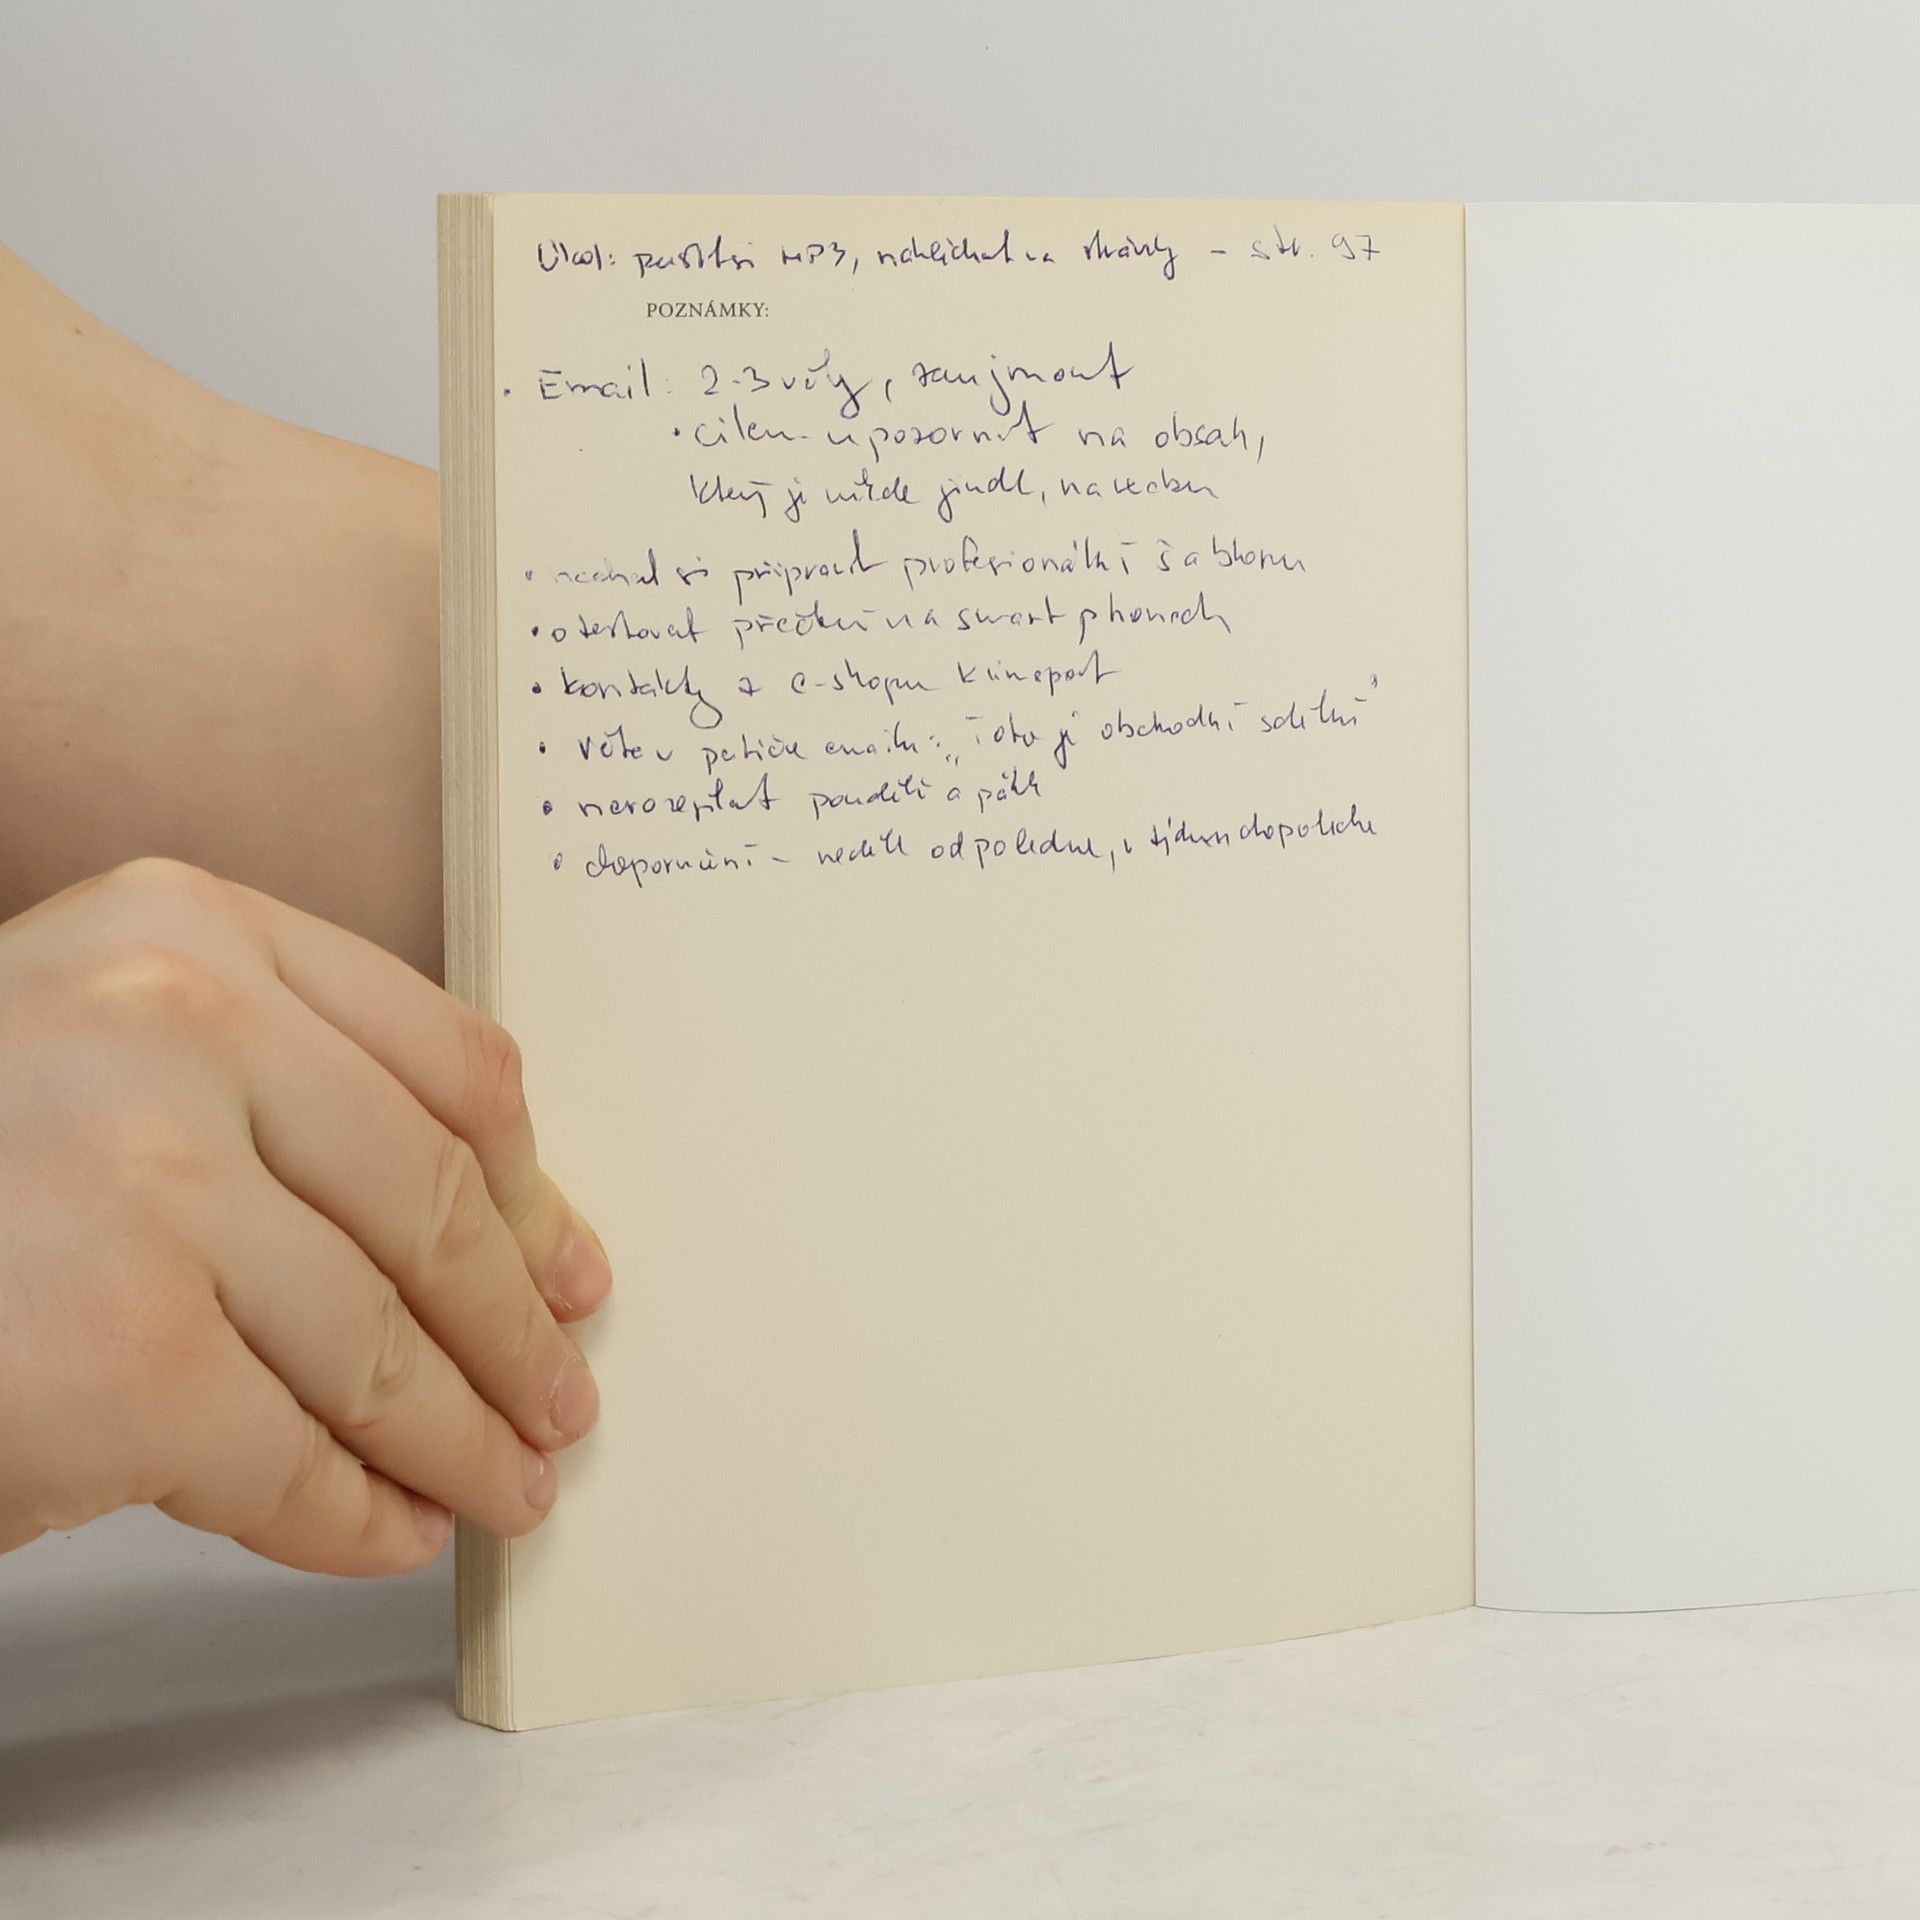 Úkol: pustit si MP3, na stránky - str. 97
POZNÁMKY:
• Email: 2-3 věty, zaujmout
• cílem - upozornit na obsah,
který je někde jinde, na webu
• nechat si připravit profesionální šablonu
• otestovat přečtení na smart phonech
• kontakty z e-shopu
• Věta v patičce emailu: „Toto je obchodní sdělení"
• nerozesílat pondělí a pátek
• doporučení - neděle odpoledne, v týdnu dopoledne